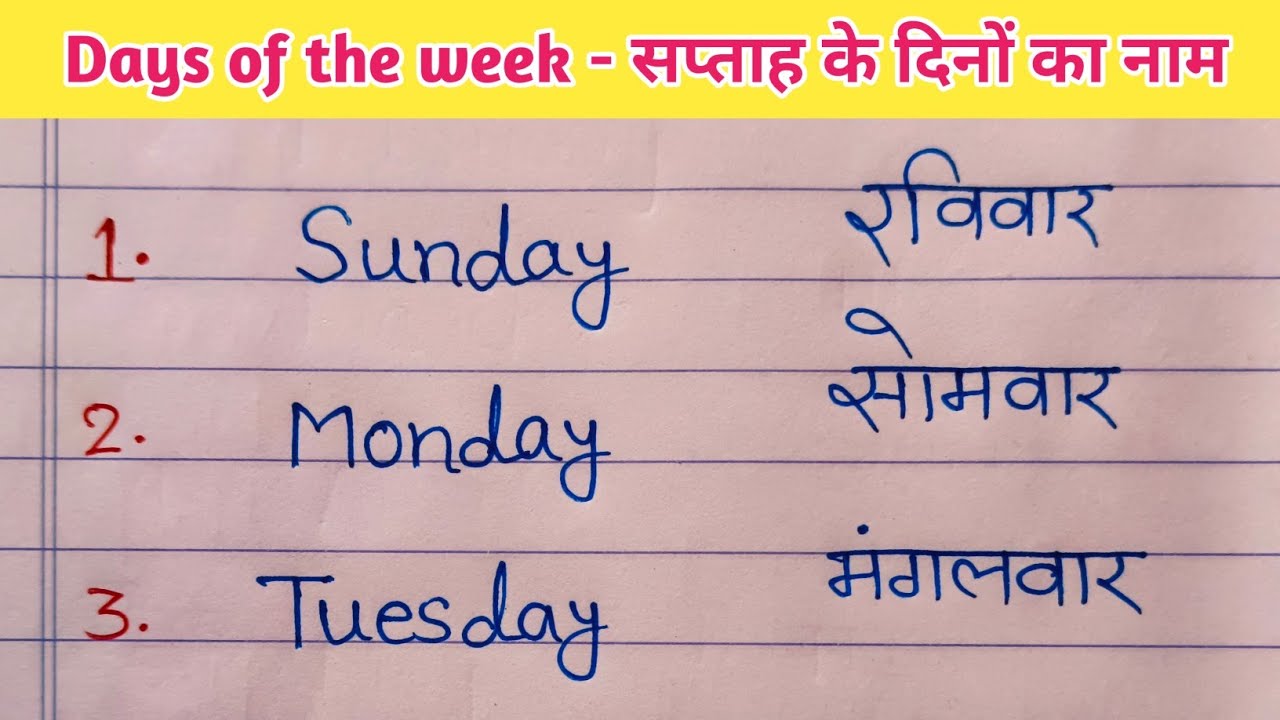 Days of the week - सप्ताह के दिनों का नाम
1. Sunday रविवार
2. Monday सोमवार
3. Tuesday मंगलवार